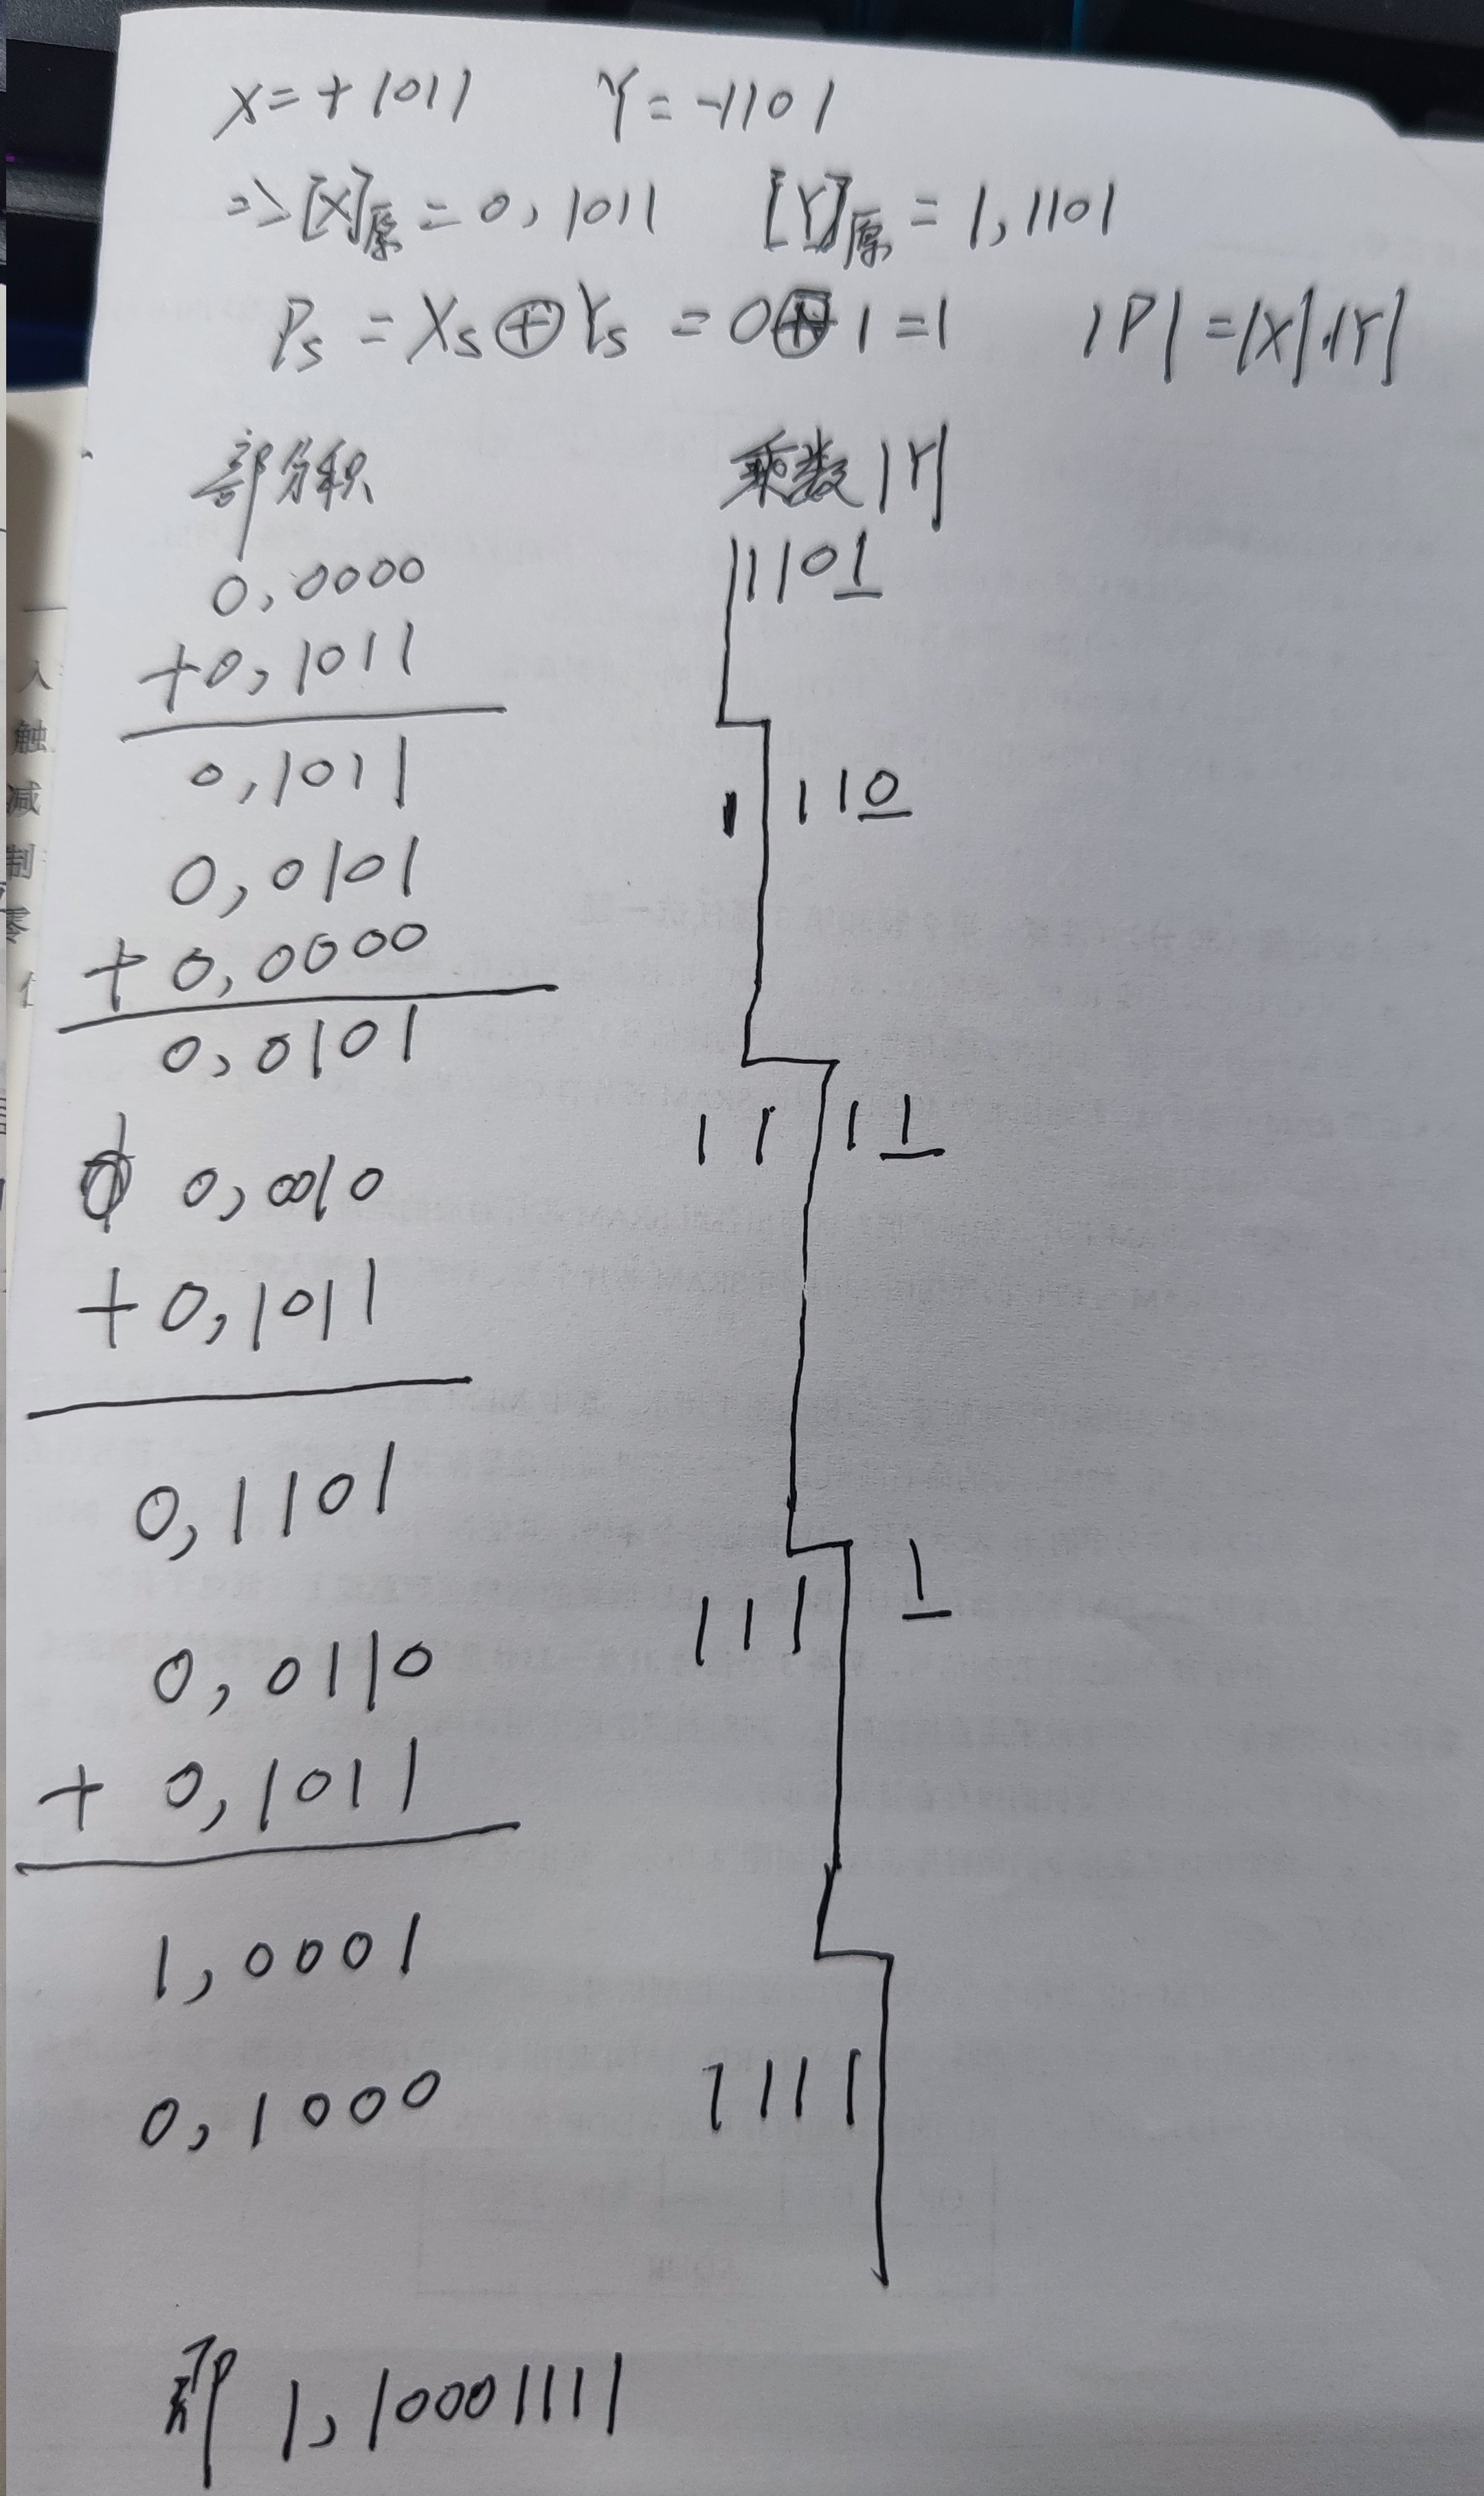 X=+1011 Y=-1101
=>[X]原=0,1011 [Y]原=1,1101
Ps=Xs⊕Ys=0⊕1=1 |P|=|X|·|Y|
部分积 乘数|Y|
0,0000 1101
+0,1011
0,1011
1 110
0,0101
+0,0000
0,0101
11 11
0,0010
+0,1011
0,1101
111 1
0,0110
+0,1011
1,0001
0,1000 1111
1,10001111
入
触
减
制
零